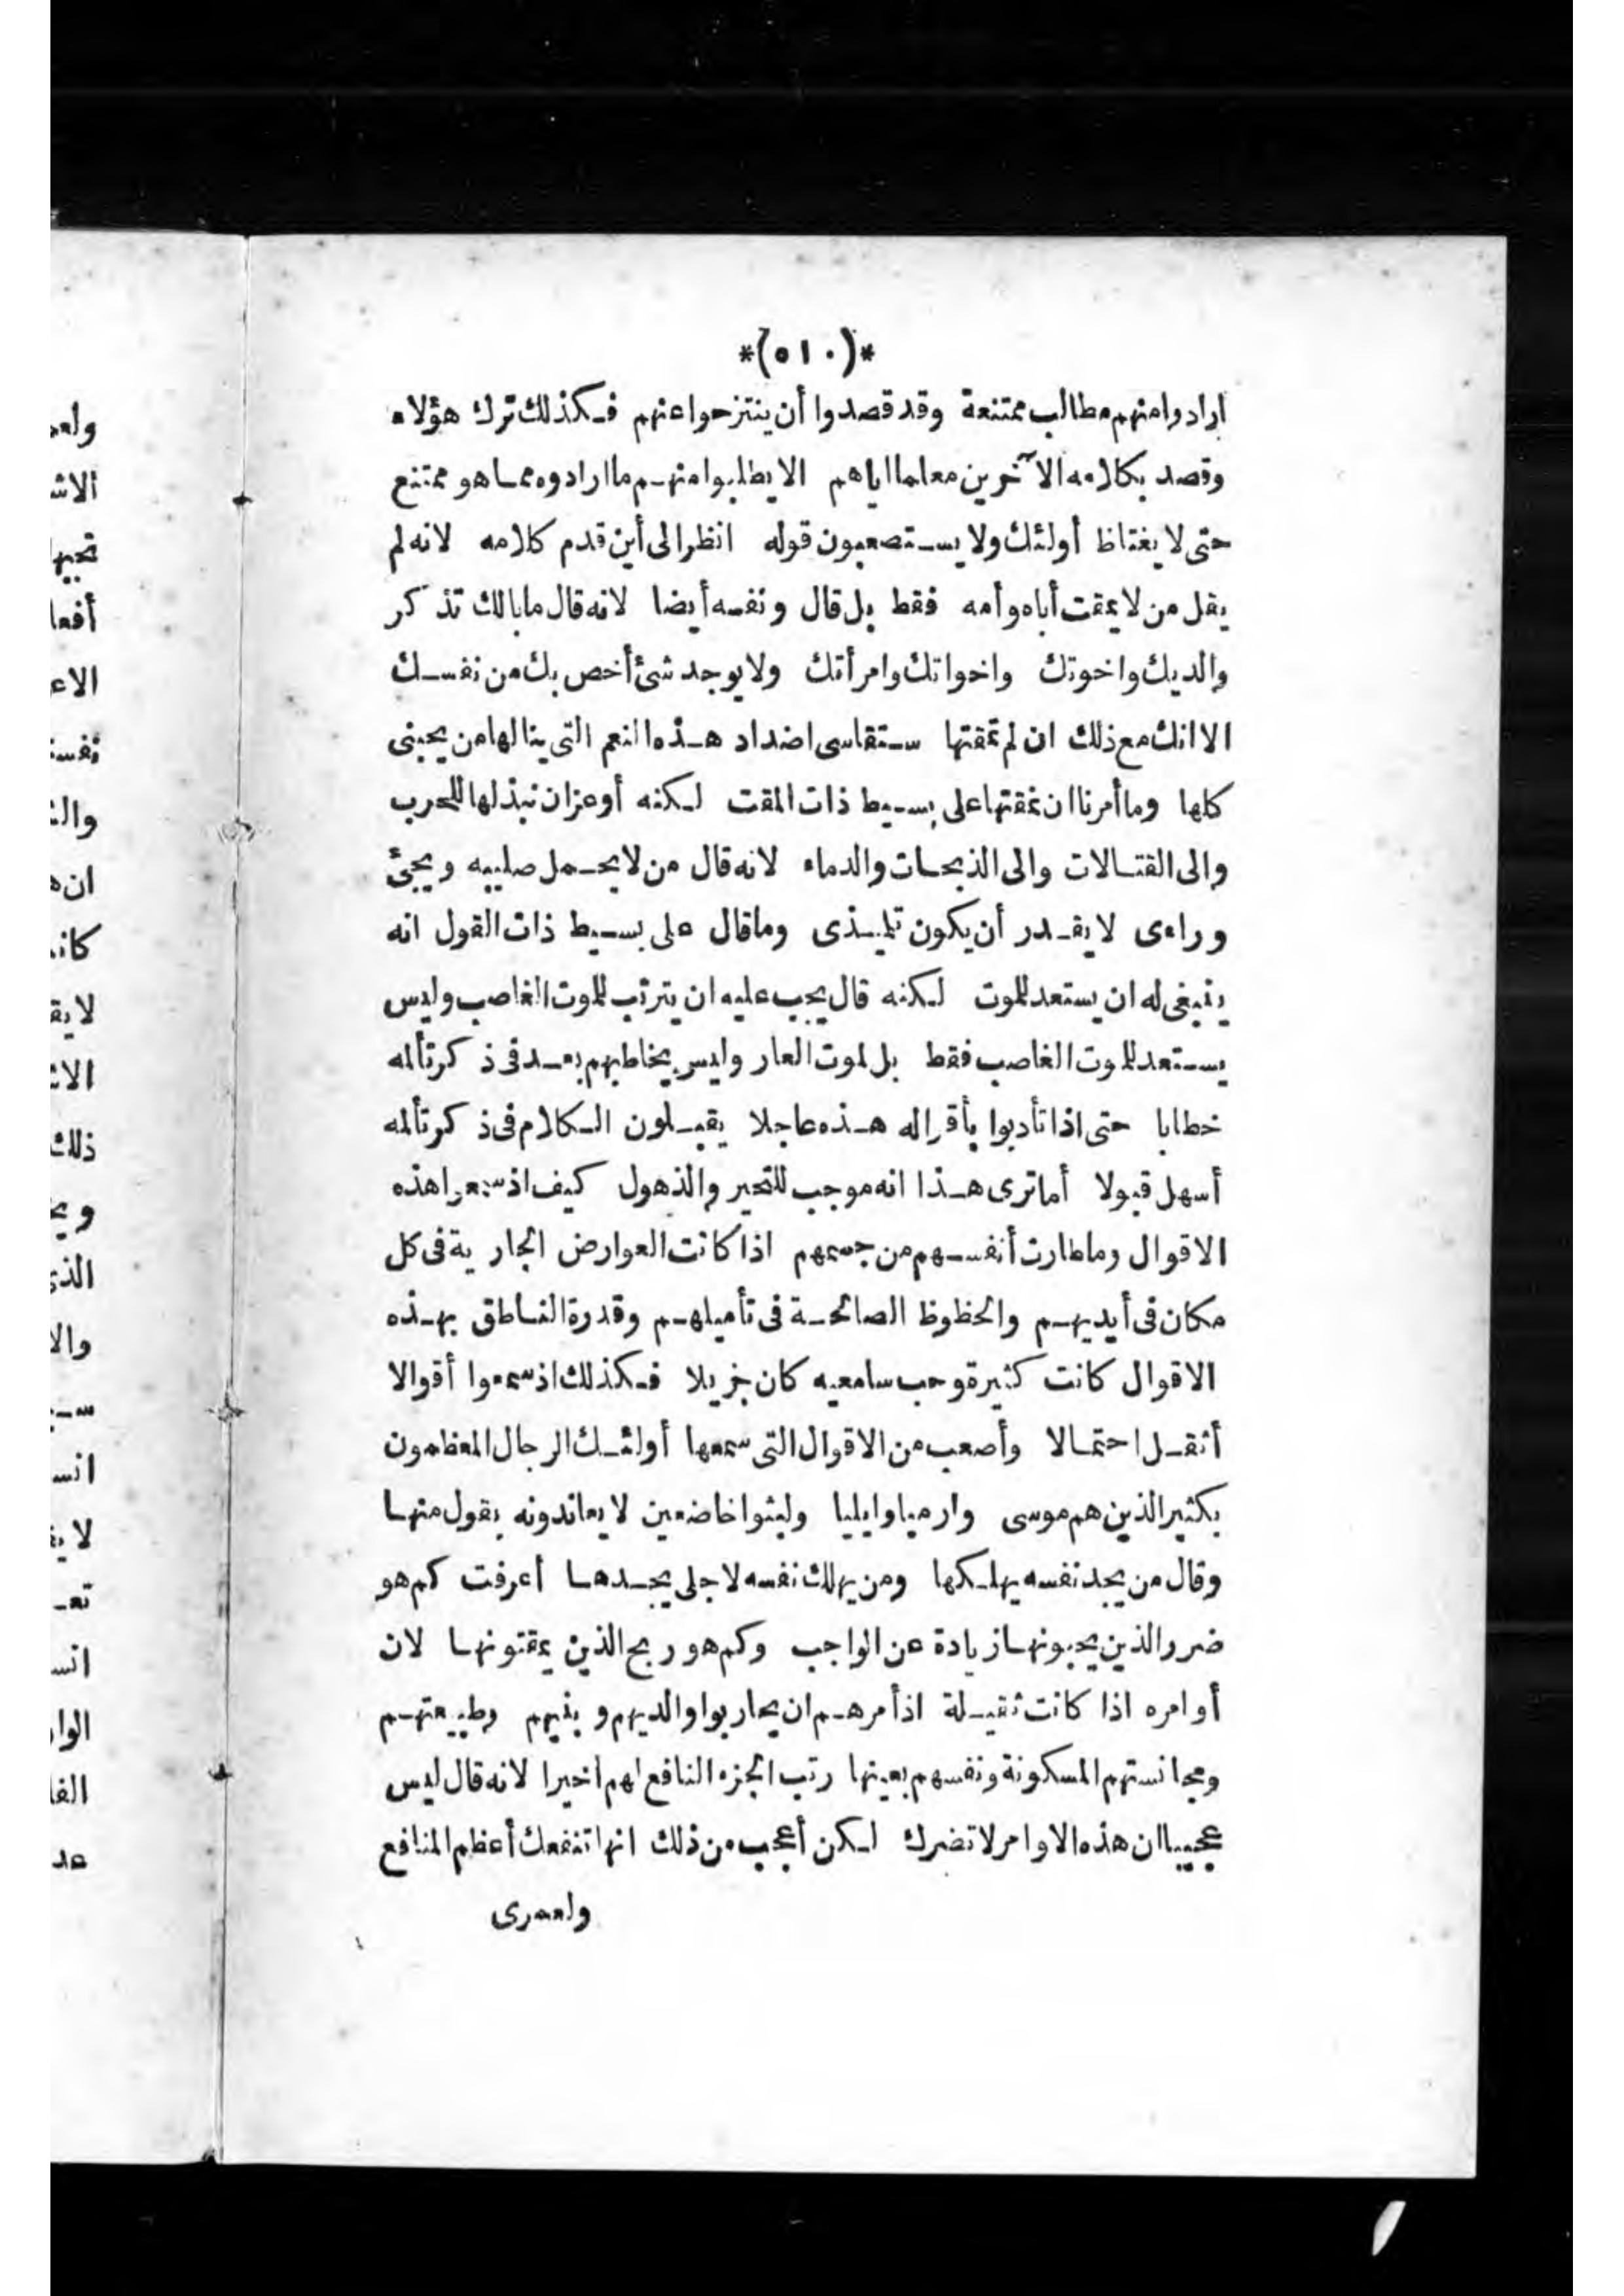 *(٥١٠)*
ارادوا منهم مطالب ممتنعة وقد قصدوا أن ينتزحوا عنهم فكذلك ترك هؤلاء
وقصد بكلامه الآخرين معلما اياهم الا يطلبوا منهم ما ارادوه مما هو ممتنع
حتى لا يغتاظ أولئك ولا يستصعبون قوله انظر الى أين قدم كلامه لانه لم
يقل من لا يمقت أباه وأمه فقط بل قال ونفسه أيضا لانه قال ما بالك تذكر
والديك واخوتك واخواتك وامرأتك ولا يوجد شئ أخص بك من نفسك
الا انك مع ذلك ان لم تمقتها ستقاسى اضداد هذه النعم التى ينالها من يحبنى
كلها وما أمرنا ان نمقتها على بسيط ذات المقت لكنه أوعز ان نبذلها للحرب
والى القتالات والى الذبحات والدماء لانه قال من لا يحمل صليبه ويجئ
وراءى لا يقدر أن يكون تلميذى وما قال على بسيط ذات القول انه
ينبغى له ان يستعد للموت لكنه قال يجب عليه ان يترتب للموت الغاصب وليس
يستعد للموت الغاصب فقط بل لموت العار وليس يخاطبهم بعد فى ذكر تألمه
خطابا حتى اذا تأدبوا بأقواله هذه عاجلا يقبلون الكلام فى ذكر تألمه
أسهل قبولا أما ترى هذا انه موجب للتحير والذهول كيف اذ سمعوا هذه
الاقوال وما طارت أنفسهم من جسمهم اذا كانت العوارض الجارية فى كل
مكان فى أيديهم والحظوظ الصالحة فى تأميلهم وقدرة الناطق بهذه
الاقوال كانت كثيرة وحب سامعيه كان جزيلا فكذلك اذ سمعوا أقوالا
أثقل احتمالا وأصعب من الاقوال التى سمعها أولئك الرجال المعظمون
بكثير الذين هم موسى وارميا وايليا ولبثوا خاضعين لا يعاندونه بقول منها
وقال من يجد نفسه يهلكها ومن يهلك نفسه لاجلى يجدها أعرفت كم هو
ضرر الذين يحبونها زيادة عن الواجب وكم هو ربح الذين يمقتونها لان
أوامره اذا كانت ثقيلة اذ أمرهم ان يحاربوا والديهم وبنيهم وطبيعتهم
ومجانستهم المسكونة ونفسهم بعينها رتب الجزء النافع لهم اخيرا لانه قال ليس
عجيبا ان هذه الاوامر لا تضرك لكن أعجب من ذلك انها تنفعك أعظم المنافع
ولعمرى